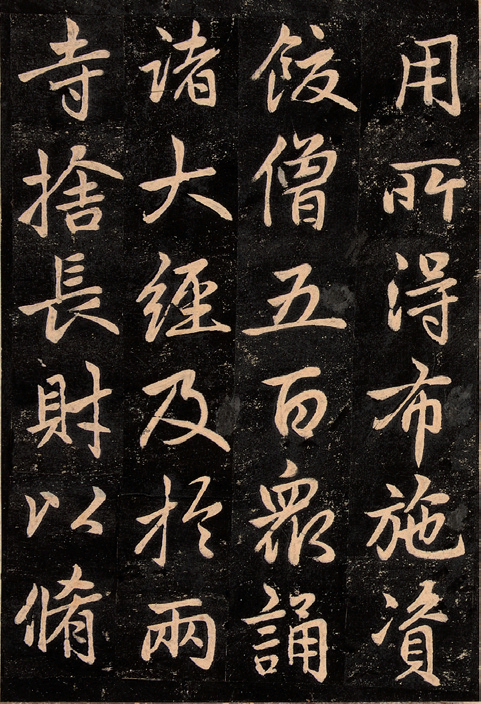 用所得布施資
飯僧五百衆誦
諸大經及於兩
寺捨長財以脩